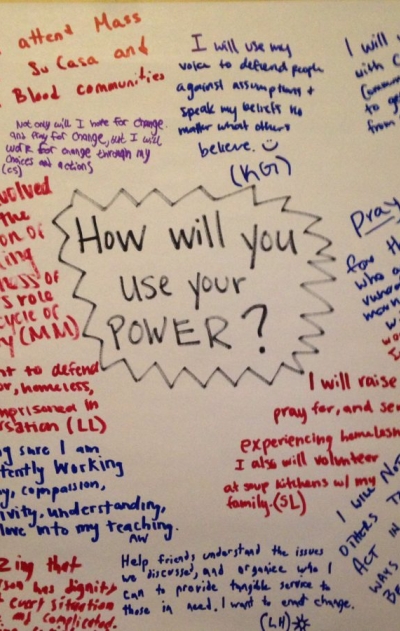 attend Mass
Su Casa and
Blood communities
Not only will I hope for change
and pray for change, but I will
work for change through my
choices and actions
(CS)
I will use my
voice to defend people
against assumptions +
speak my beliefs no
matter what others
believe. ☺
(KG)
I will
with C
to g
from
volved
the
on of
ing
ness of
s role
cycle of
y (MM)
How will you
use your
POWER?
Pray
for th
who a
W
I
nt to defend
or, homeless,
imprisoned in
rsation (LL)
I will raise
pray for, and se
experiencing homelessn
I also will volunteer
at soup kitchens w/ my
family. (SL)
g sure I am
tently working
y, compassion,
ivity, understanding,
love into my teaching.
AW
I will NOT
OTHERS T
ACT IN
WAYS
BE
zing that
son has dignity
t every situation
complicated.
Help friends understand the issues
we discussed, and organize who I
can to provide tangible service to
those in need. I want to enact change.
(LH)